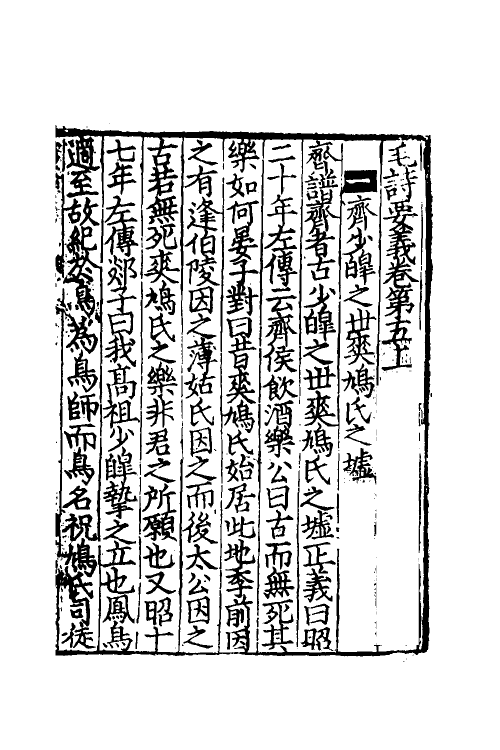 毛詩要義卷第五上
一 齊少皞之世爽鳩氏之墟
齊譜齊者古少皞之世爽鳩氏之墟正義曰昭
二十年左傳云齊侯飲酒樂公曰古而無死其
樂如何晏子對曰昔爽鳩氏始居此地季前因
之有逢伯陵因之薄姑氏因之而後太公因之
古若無死爽鳩氏之樂非君之所願也又昭十
七年左傳郯子曰我高祖少皞摯之立也鳳鳥
適至故紀於鳥為鳥師而鳥名祝鳩氏司徒